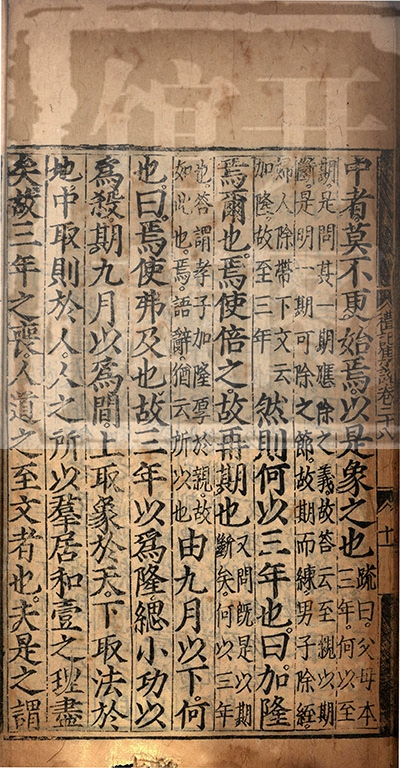 中者莫不更始焉。以是象之也 疏曰。父母本三年。何以至
期。是問其一期應除之義。故答云至親以期斷。是明一期可除之節。故期而練。男子除絰。
婦人除帶。下文云加隆。故至三年 然則何以三年也。曰。加隆
焉爾也。焉使倍之。故再期也 又問既是以期斷矣。何以三年
也。答謂孝子加隆厚於親。故如此也。焉。語辭。猶云所以也 由九月以下。何
也。曰。焉使弗及也。故三年以爲隆。緦小功以
爲殺。期九月以爲間。上取象於天。下取法於
地。中取則於人。人之所以羣居和壹之理盡
矣。故三年之喪。人道之至文者也。夫是之謂
卷二十八
十一